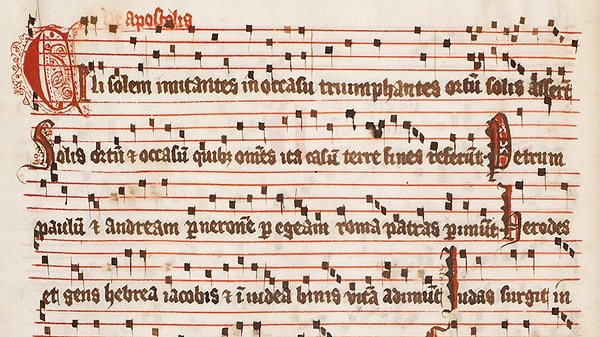 de Apostolis
Celi solem imitantes in occasu triumphantes ortū solis assert
Solis ortū & occasū quibꝫ om̄es ita casū terre fines referūt Petrum
paulū & andream ꝑ neronē ꝑ egeam roma patras ꝑimūt Herodes
et gens hebrea iacobis & ī iudea binis vitā adimūt Judas surgit in